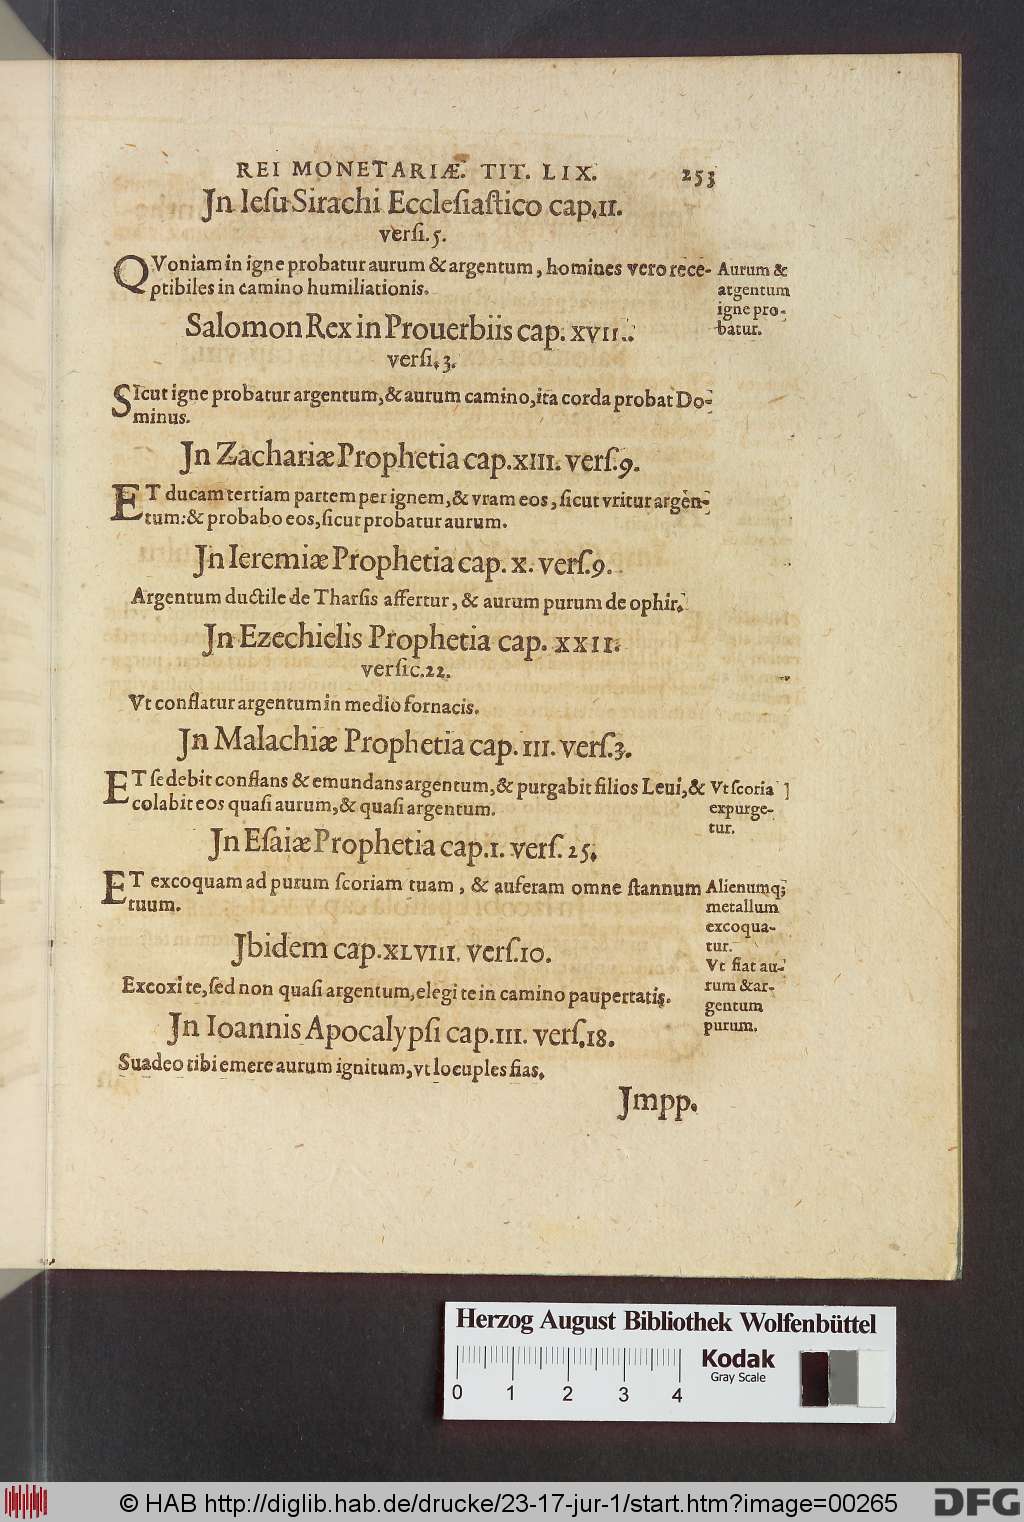 REI MONETARIÆ. TIT. LIX. 253
Jn Ieſu Sirachi Eccleſiaſtico cap. II.
verſi. 5.
QVoniam in igne probatur aurum & argentum, homines vero rece-
ptibiles in camino humiliationis.
Aurum &
argentum
igne pro-
batur.
Salomon Rex in Prouerbiis cap. XVII.
verſi. 3.
SIcut igne probatur argentum, & aurum camino, ita corda probat Do-
minus.
Jn Zachariæ Prophetia cap. XIII. verſ. 9.
ET ducam tertiam partem per ignem, & vram eos, ſicut vritur argen-
tum: & probabo eos, ſicut probatur aurum.
Jn Ieremiæ Prophetia cap. X. verſ. 9.
Argentum ductile de Tharſis affertur, & aurum purum de ophir.
Jn Ezechielis Prophetia cap. XXII.
verſic. 22.
Vt conflatur argentum in medio fornacis.
Jn Malachiæ Prophetia cap. III. verſ. 3.
ET ſedebit conflans & emundans argentum, & purgabit filios Leui, &
colabit eos quaſi aurum, & quaſi argentum.
Vt ſcoria
expurge-
tur.
Jn Eſaiæ Prophetia cap. I. verſ. 25.
ET excoquam ad purum ſcoriam tuam, & auferam omne ſtannum
tuum.
Alienumq;
metallum
excoqua-
tur.
Jbidem cap. XLVIII. verſ. 10.
Excoxi te, ſed non quaſi argentum, elegi te in camino paupertatis.
Vt fiat au-
rum & ar-
gentum
purum.
Jn Ioannis Apocalypſi cap. III. verſ. 18.
Suadeo tibi emere aurum ignitum, vt locuples fias.
Jmpp.
Herzog August Bibliothek Wolfenbüttel
Kodak
Gray Scale
0 1 2 3 4
© HAB http://diglib.hab.de/drucke/23-17-jur-1/start.htm?image=00265
DFG